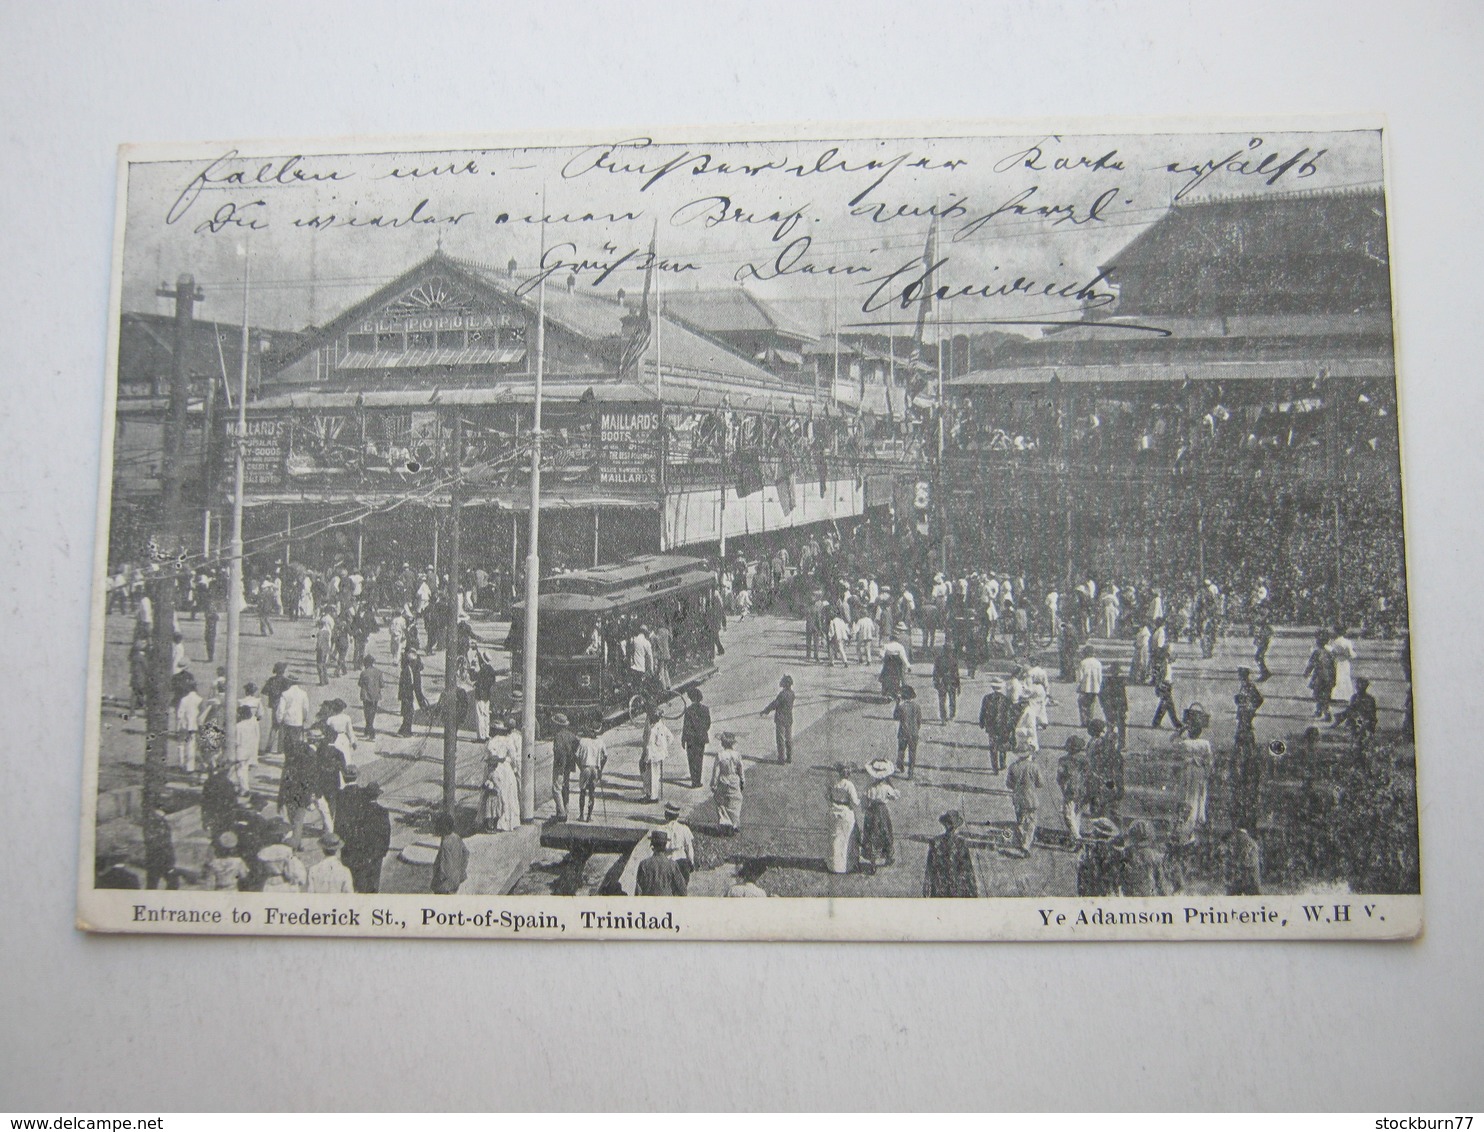 fallen mir. – Außer dieser Karte erhälst
Du wieder einen Brief. Mit herzl.
Grüßen Dein Heinrich
EL POPULAR
MAILLARD'S
MAILLARD'S
BOOTS
THE BEST
MAILLARD'S
3
Entrance to Frederick St., Port-of-Spain, Trinidad,
Ye Adamson Printerie, W.H V.
stockburn77